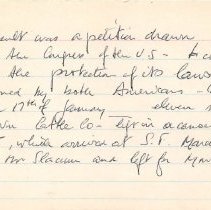 result was a petition drawn
the Congress of the U.S.
the protection of its laws
by both Americans
17th of January eleven
Cattle Co - left in a canoe
, which arrived at S.F. Marc
Mr Slacum and left for Mon